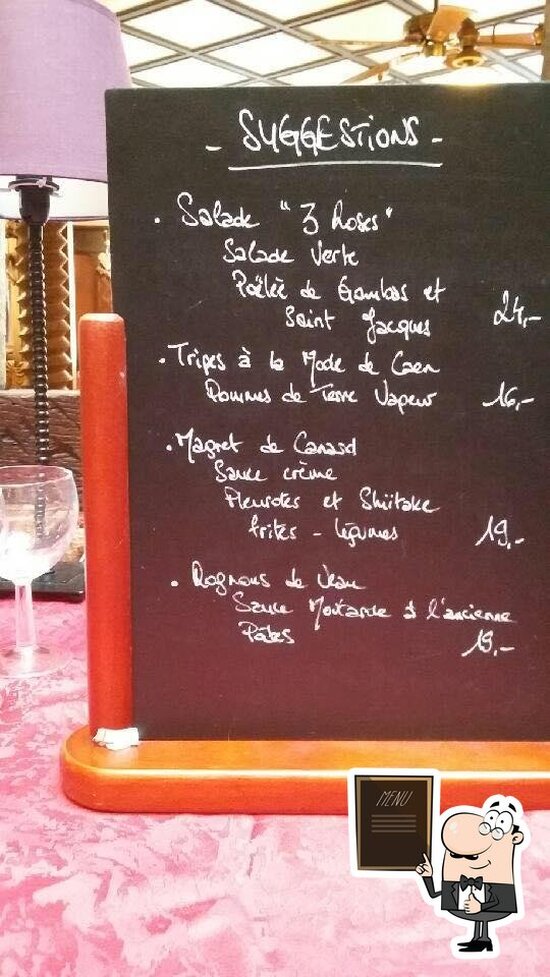 - SUGGESTIONS -
. Salade " 3 Roses "
Salade Verte
Poêlée de Gambas et
Saint Jacques 24,-
. Tripes à la Mode de Caen
Pommes de Terre Vapeur 16,-
. Magret de Canard
Sauce crème
Pleurotes et Shiitake
frites - légumes 19,-
. Rognons de Veau
Sauce Moutarde à l'ancienne
Pâtes 19,-
MENU